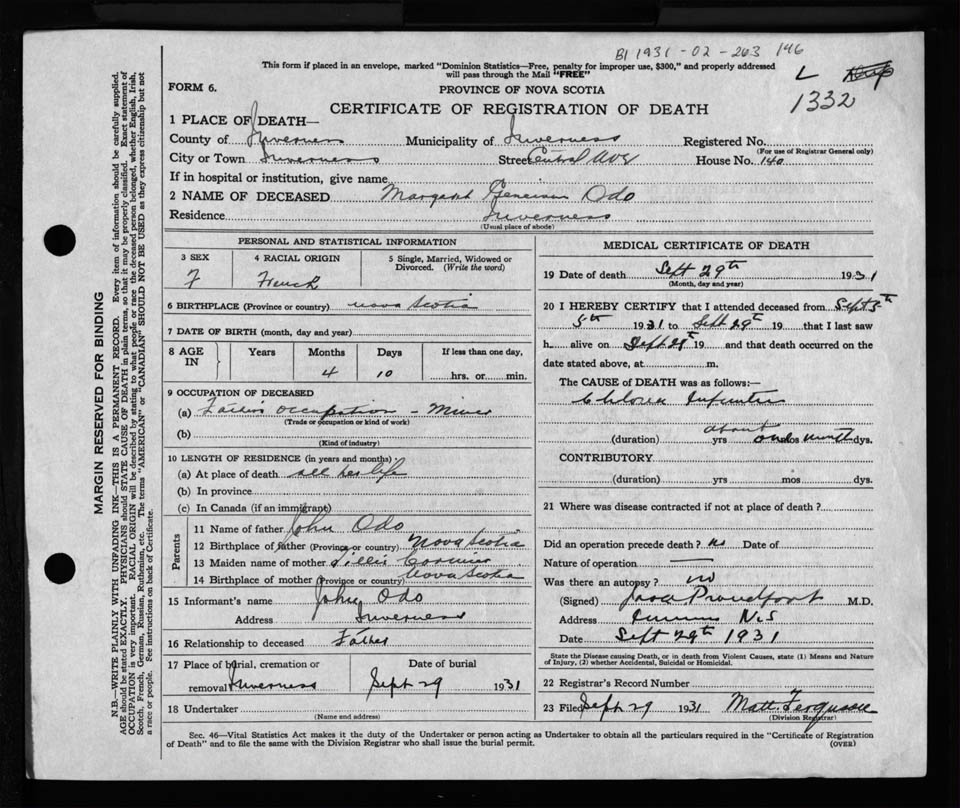 B1 1931-02-263 146
This form if placed in an envelope, marked "Dominion Statistics—Free, penalty for improper use, $300," and properly addressed
will pass through the Mail "FREE"
L
1332
FORM 6.
PROVINCE OF NOVA SCOTIA
CERTIFICATE OF REGISTRATION OF DEATH
1 PLACE OF DEATH—
County of Inverness Municipality of Inverness Registered No.
(For use of Registrar General only)
City or Town Inverness Street Central Ave House No. 140
If in hospital or institution, give name
2 NAME OF DECEASED Margaret Odo
Residence Inverness
(Usual place of abode)
PERSONAL AND STATISTICAL INFORMATION
3 SEX 4 RACIAL ORIGIN 5 Single, Married, Widowed or
Divorced. (Write the word)
F French
6 BIRTHPLACE (Province or country) Nova Scotia
7 DATE OF BIRTH (month, day and year)
8 AGE IN Years Months Days If less than one day,
4 10 hrs. or min.
9 OCCUPATION OF DECEASED
(a) Father's occupation - Miner
(Trade or occupation or kind of work)
(b)
(Kind of industry)
10 LENGTH OF RESIDENCE (in years and months)
(a) At place of death all her life
(b) In province
(c) In Canada (if an immigrant)
Parents
11 Name of father John Odo
12 Birthplace of father (Province or country) Nova Scotia
13 Maiden name of mother Cormier
14 Birthplace of mother (Province or country) Nova Scotia
15 Informant's name John Odo
Address Inverness
16 Relationship to deceased Father
17 Place of burial, cremation or Date of burial
removal Inverness Sept 29 1931
18 Undertaker
(Name and address)
MEDICAL CERTIFICATE OF DEATH
19 Date of death Sept 29th 1931
(Month, day and year)
20 I HEREBY CERTIFY that I attended deceased from Sept 5th
5th 1931 to Sept 29th 19 that I last saw
h alive on Sept 29th 19 and that death occurred on the
date stated above, at m.
The CAUSE of DEATH was as follows:—
Cholera
(duration) about yrs one mos month dys.
CONTRIBUTORY
(duration) yrs mos dys.
21 Where was disease contracted if not at place of death?
Did an operation precede death? no Date of
Nature of operation —
Was there an autopsy? no
(Signed) Proudfoot M.D.
Address N.S
Date Sept 29th 1931
State the Disease causing Death, or in death from Violent Causes, state (1) Means and Nature
of Injury, (2) whether Accidental, Suicidal or Homicidal.
22 Registrar's Record Number
23 Filed Sept 29 1931 Matt. Ferguson
(Division Registrar)
Sec. 46—Vital Statistics Act makes it the duty of the Undertaker or person acting as Undertaker to obtain all the particulars required in the "Certificate of Registration
of Death" and to file the same with the Division Registrar who shall issue the burial permit.
(OVER)
MARGIN RESERVED FOR BINDING
N.B.—WRITE PLAINLY WITH UNFADING INK—THIS IS A PERMANENT RECORD. Every item of information should be carefully supplied.
AGE should be stated EXACTLY. PHYSICIANS should STATE CAUSE OF DEATH in plain terms, so that it may be properly classified. Exact statement of
OCCUPATION is very important. RACIAL ORIGIN will be described by stating to what people or race the deceased person belonged, whether English, Irish,
Scotch, French, German, Russian, Ruthenian, etc. The terms "AMERICAN" or "CANADIAN" SHOULD NOT BE USED as they express citizenship but not
a race or people. See instructions on back of Certificate.